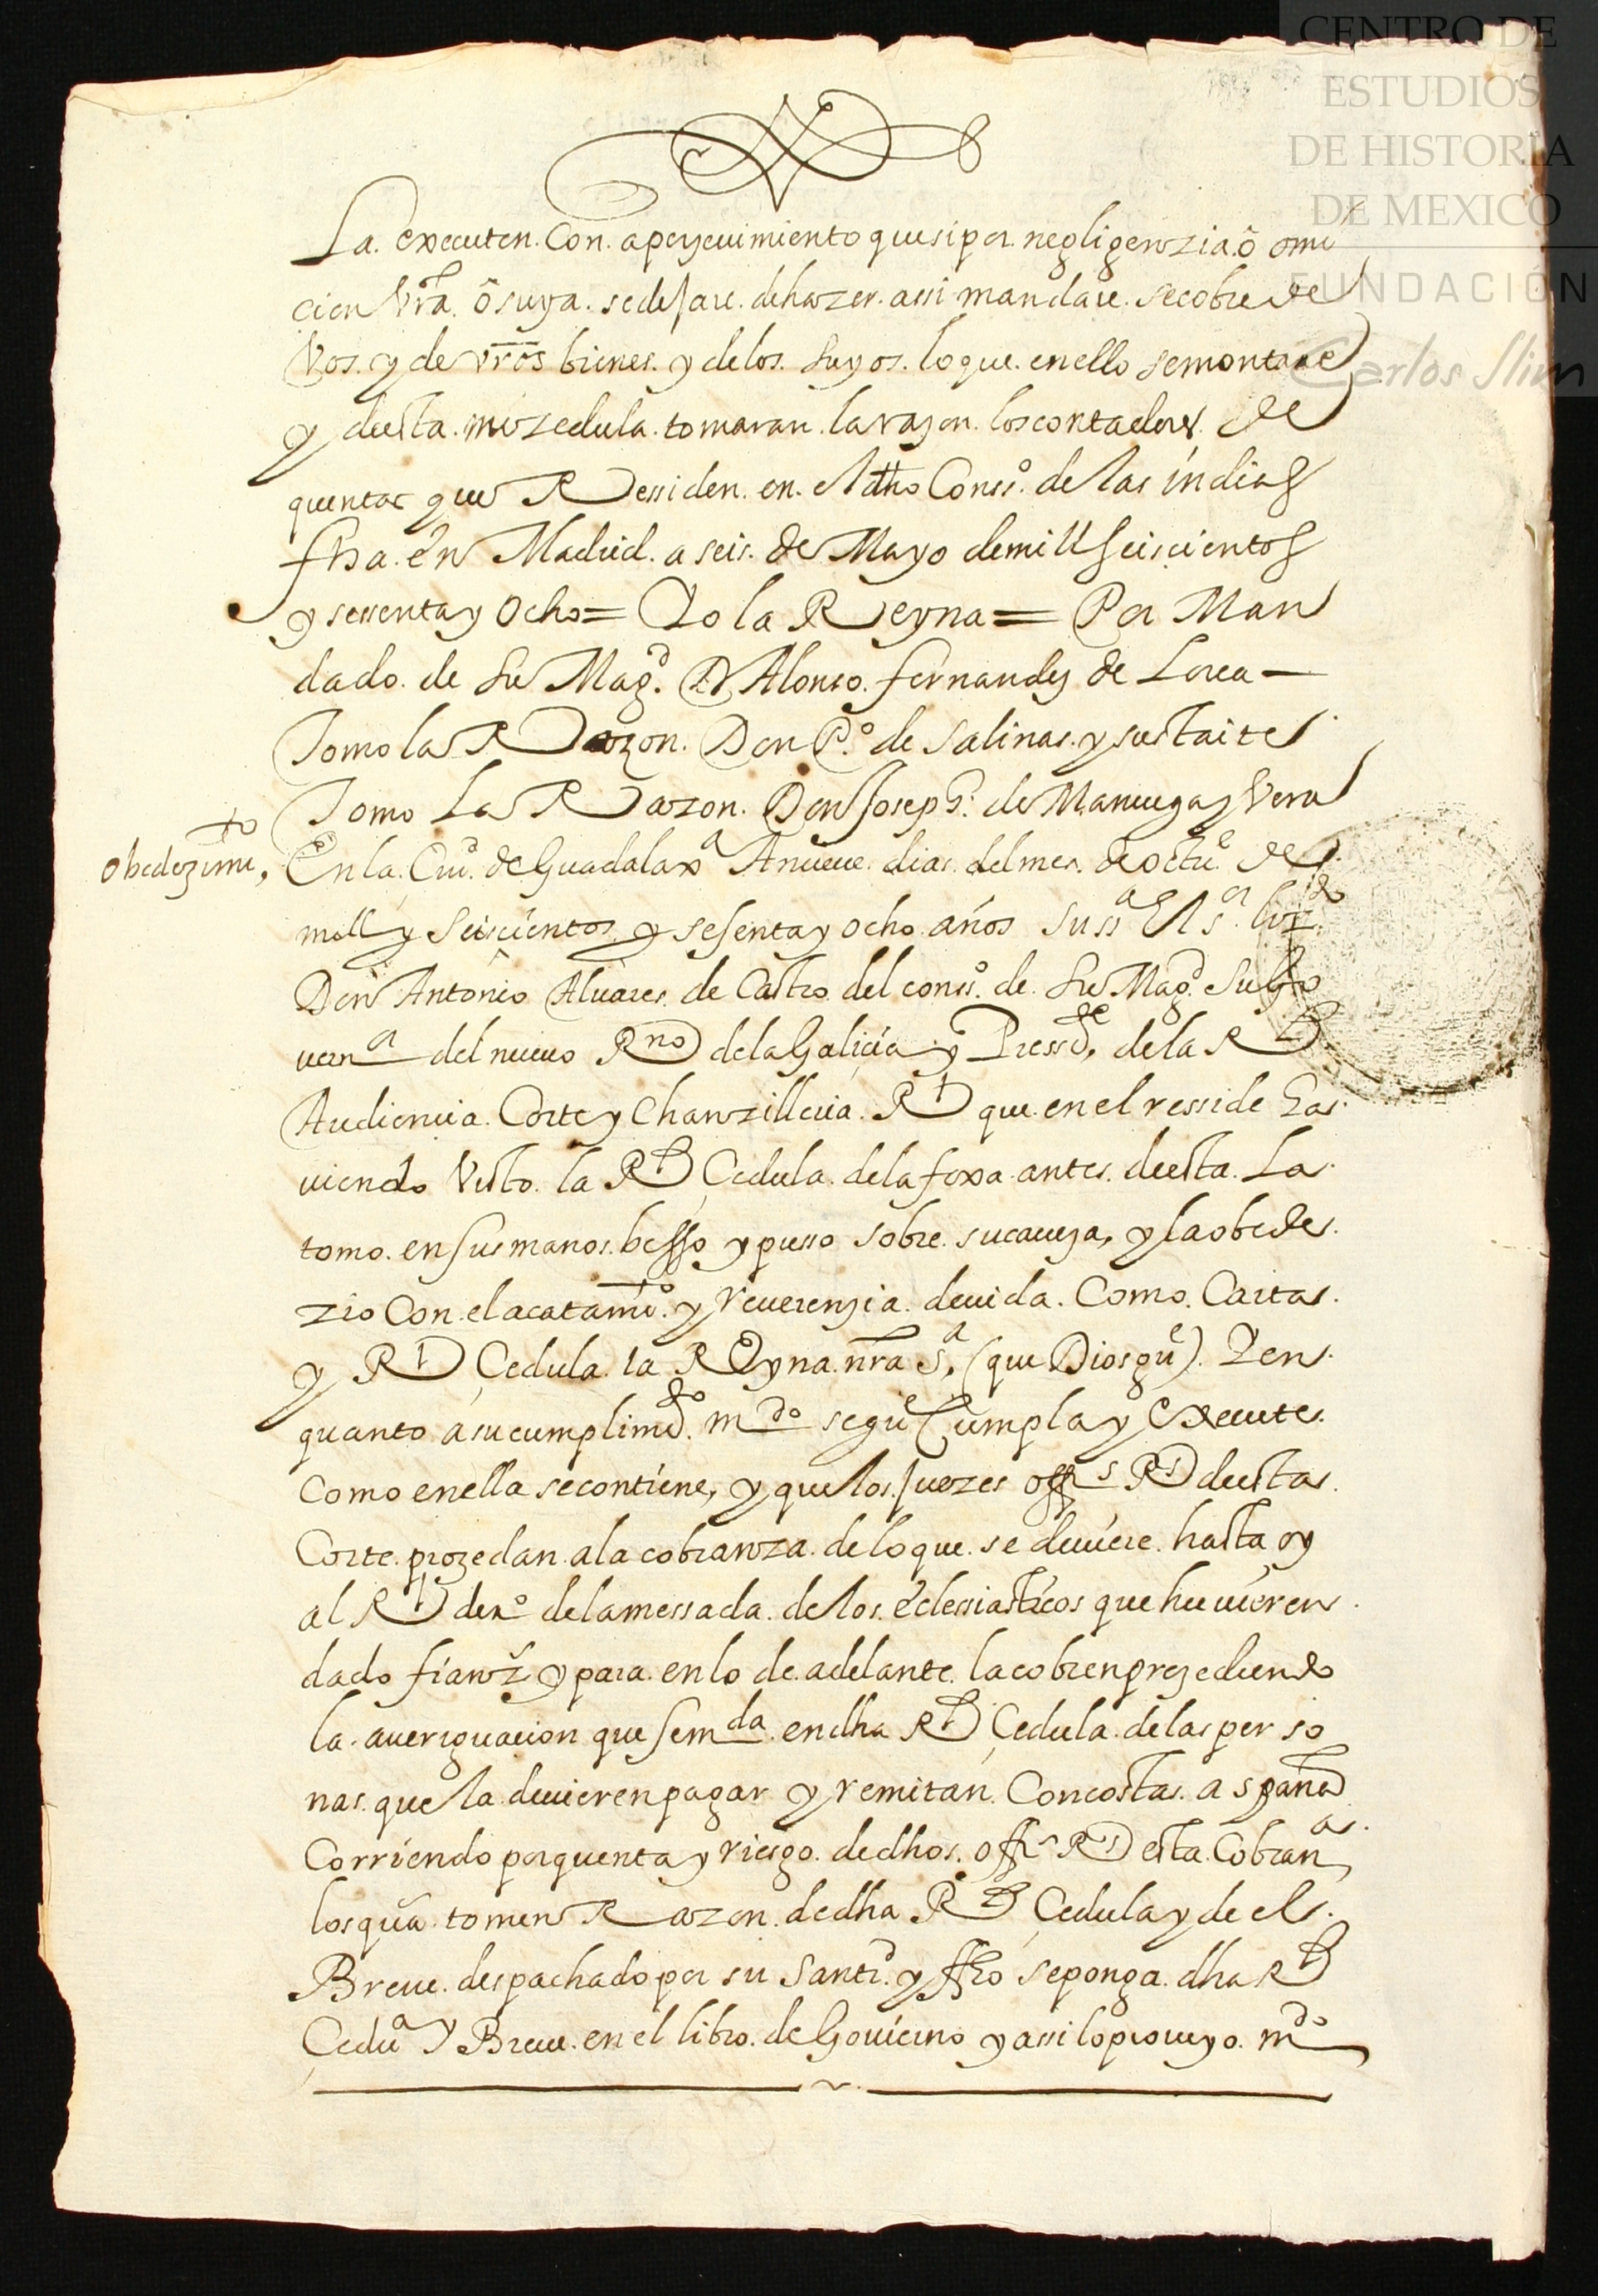 CENTRO DE
ESTUDIOS
DE HISTORIA
DE MEXICO
FUNDACIÓN
Carlos Slim
La executen. Con. aperseuimiento que si por. negligenzia. ô omi
cion Vrã. ô suya. se dejare. de hazer. assi mandare. se cobre de
Vos. y de vrõs bienes. y de los. suyos. lo que. en ello se montare
y desta. mi zedula. tomaran. la razon. los contadores. de
quentas que Ressiden. en. el dho Conss.º de las indias
fha. en Madrid. a seis. de Mayo de mill seiscientos
y sessenta y Ocho = Yo la Reyna = Por Man
dado. de su Mag.d Dn Alonso. fernandez de Lorca —
Tomo la Razon. Don P.º de Salinas. y sustaite
Tomo La Razon. Don Joseph: de Manurga y Vera
obedezimto,
En la. Ciu.d de Guadalaxa A nueue. dias. del mes. de octue. de
mill y seiscientos y sesenta y ocho años su ssa El sr. lizdo.
Don Antonio Aluares. de Castro. del conss.º de. su Mag.d su Go
uernor del nueuo Rno de la Galicia y Pressde. de la Rl
Audiencia. Corte y Chanzilleria. Rl que. en el resside Ha
uiendo Visto. la Rl Çedula. de la foxa antes. desta. La
tomo. en sus manos. besso y pusso sobre. su caueza, y la obede
zio Con. el acatamto. y reuerenzia. deuida. Como. Carta
y Rl Çedula. la Reyna. nrã Sa. (que Dios gue). Y en
quanto a su cumplimdo. mdo segue Cumpla y Execute.
Como en ella se contiene, y que los Juezes offs Rls desta
Corte. prozedan. a la cobranza. de lo que. se deuiere. hasta oy
al Rl dero de la messada. de los. eclessiasticos que huuieren
dado fianz.s y para. en lo de adelante. la cobren prezediendo
la. aueriguacion que se mda. en dha Rl Çedula. de las perso
nas. que la deuieren pagar y remitan. Con costas. a españa
Corriendo por quenta y riesgo. de dhos. offs Rls esta. Cobranza,
los que tomen Razon. de dha Rl Cedula y de el
Breue. despachado por su santd. y fho se ponga. dha Rl
Çedua y Breue. en el libro. de Gouierno y assi lo proueyo. mdo